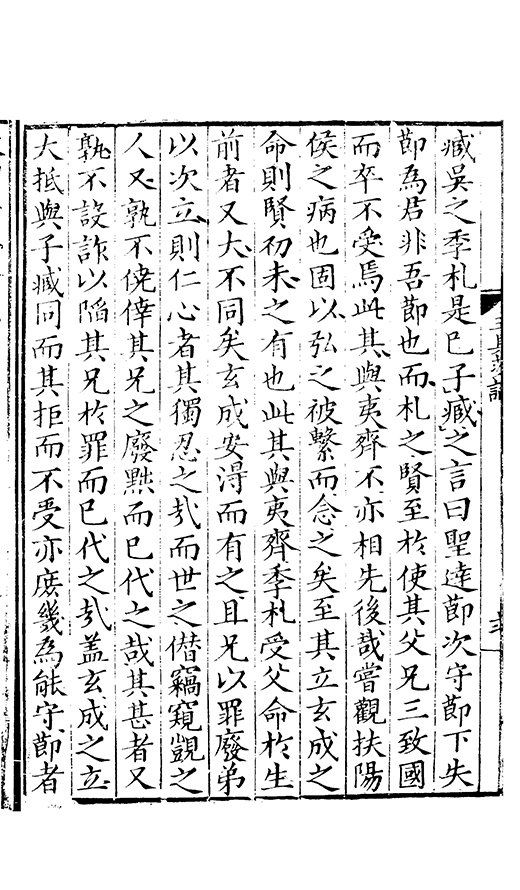 臧吳之季札是已子臧之言曰聖達節次守節下失
節為君非吾節也而札之賢至於使其父兄三致國
而卒不受焉此其與夷齊不亦相先後哉嘗觀扶陽
侯之病也固以弘之被繫而念之矣至其立玄成之
命則賢初未之有也此其與夷齊季札受父命於生
前者又大不同矣玄成安得而有之且兄以罪廢弟
以次立則仁心者其獨忍之哉而世之僭竊窺覬之
人又孰不僥倖其兄之廢黜而已代之哉其甚者又
孰不設詐以陷其兄於罪而已代之哉盖玄成之立
大抵與子臧同而其拒而不受亦庶幾為能守節者